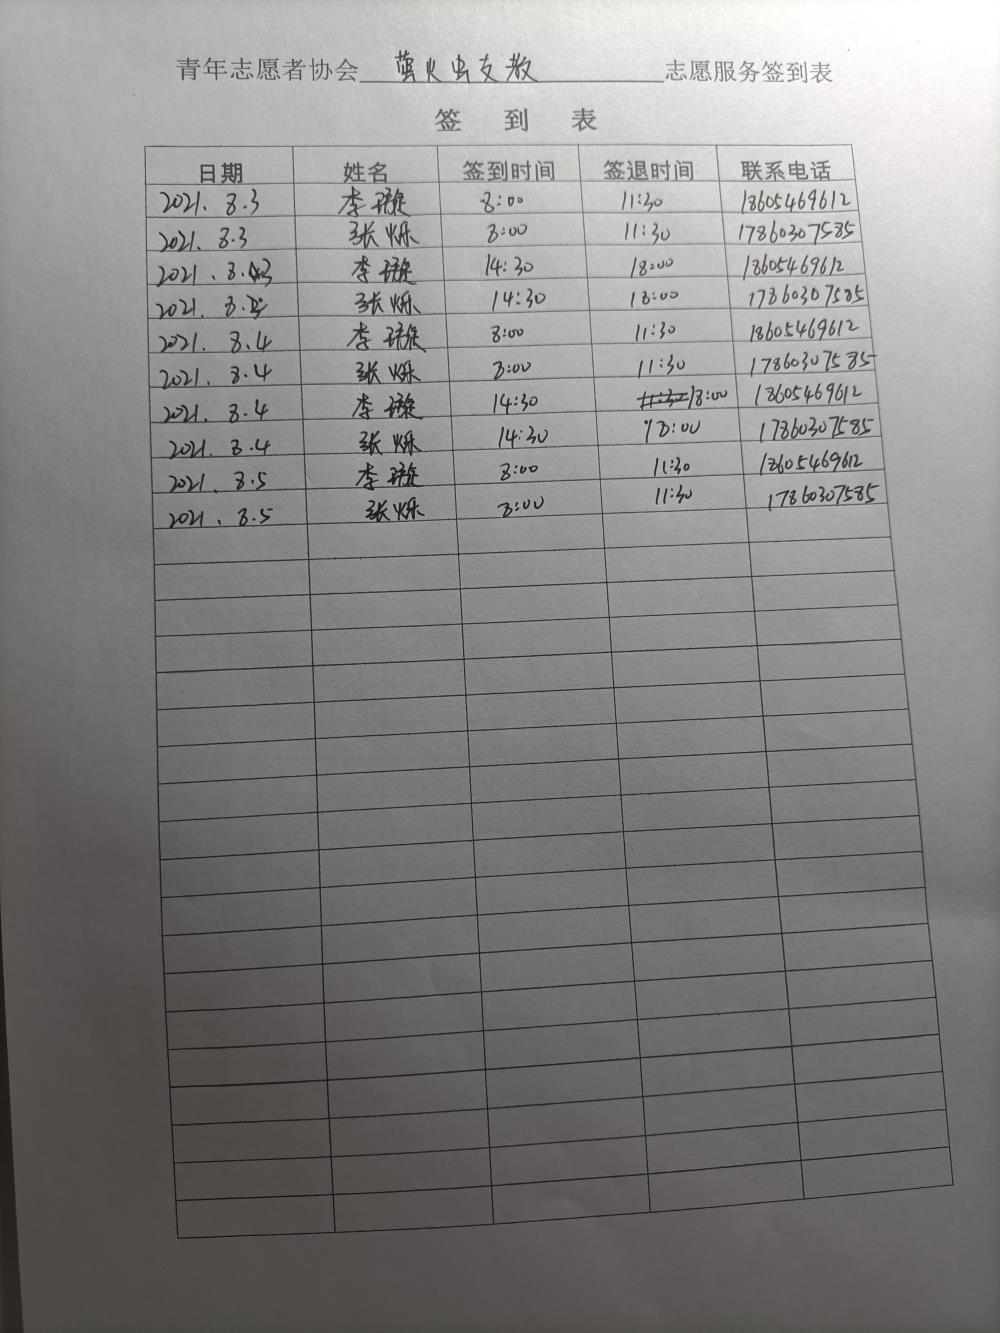 青年志愿者协会 萤火虫支教 志愿服务签到表
签 到 表
日期 姓名 签到时间 签退时间 联系电话
2021. 8.3 李璇 8:00 11:30 18605469612
2021. 8.3 张烁 8:00 11:30 17860307585
2021. 8.3 李璇 14:30 18:00 18605469612
2021. 8.3 张烁 14:30 18:00 17860307585
2021. 8.4 李璇 8:00 11:30 18605469612
2021. 8.4 张烁 8:00 11:30 17860307585
2021. 8.4 李璇 14:30 18:00 18605469612
2021. 8.4 张烁 14:30 18:00 17860307585
2021. 8.5 李璇 8:00 11:30 18605469612
2021. 8.5 张烁 8:00 11:30 17860307585